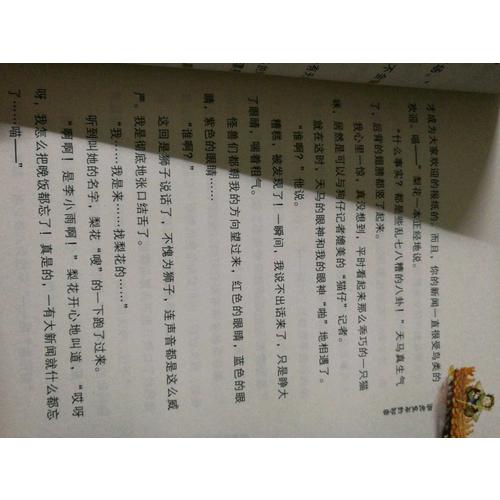 才成为大家欢迎的报纸的，而且，你的新闻一直很受鸟类的
欢迎。喵——”梨花一本正经地说。
“什么事实？都是些乱七八糟的八卦！”天马真生气
了，后背的翅膀都竖了起来。
我心里一惊，真没想到，平时看起来那么乖巧的一只猫
咪，居然是可以与狗仔记者媲美的“猫仔”记者。
就在这时，天马的眼神和我的眼神“啪”地相遇了。
“谁啊？”他说。
糟糕，被发现了！一瞬间，我说不出话来了，只是睁大
了眼睛，喘着粗气。
怪兽们都朝我的方向望过来，红色的眼睛，蓝色的眼
睛，紫色的眼睛……
“谁啊？”
这回是狮子说话了，不愧为狮子，连声音都是这么威
严。我是彻底地张口结舌了。
“我……我是来……找梨花的……”
听到叫她的名字，梨花“嗖”的一下跑了过来。
“啊啊！是李小雨啊！”梨花开心地叫道，“哎呀
呀，我怎么把晚饭都忘了！真是的，一有大新闻就什么都忘
了……喵——”